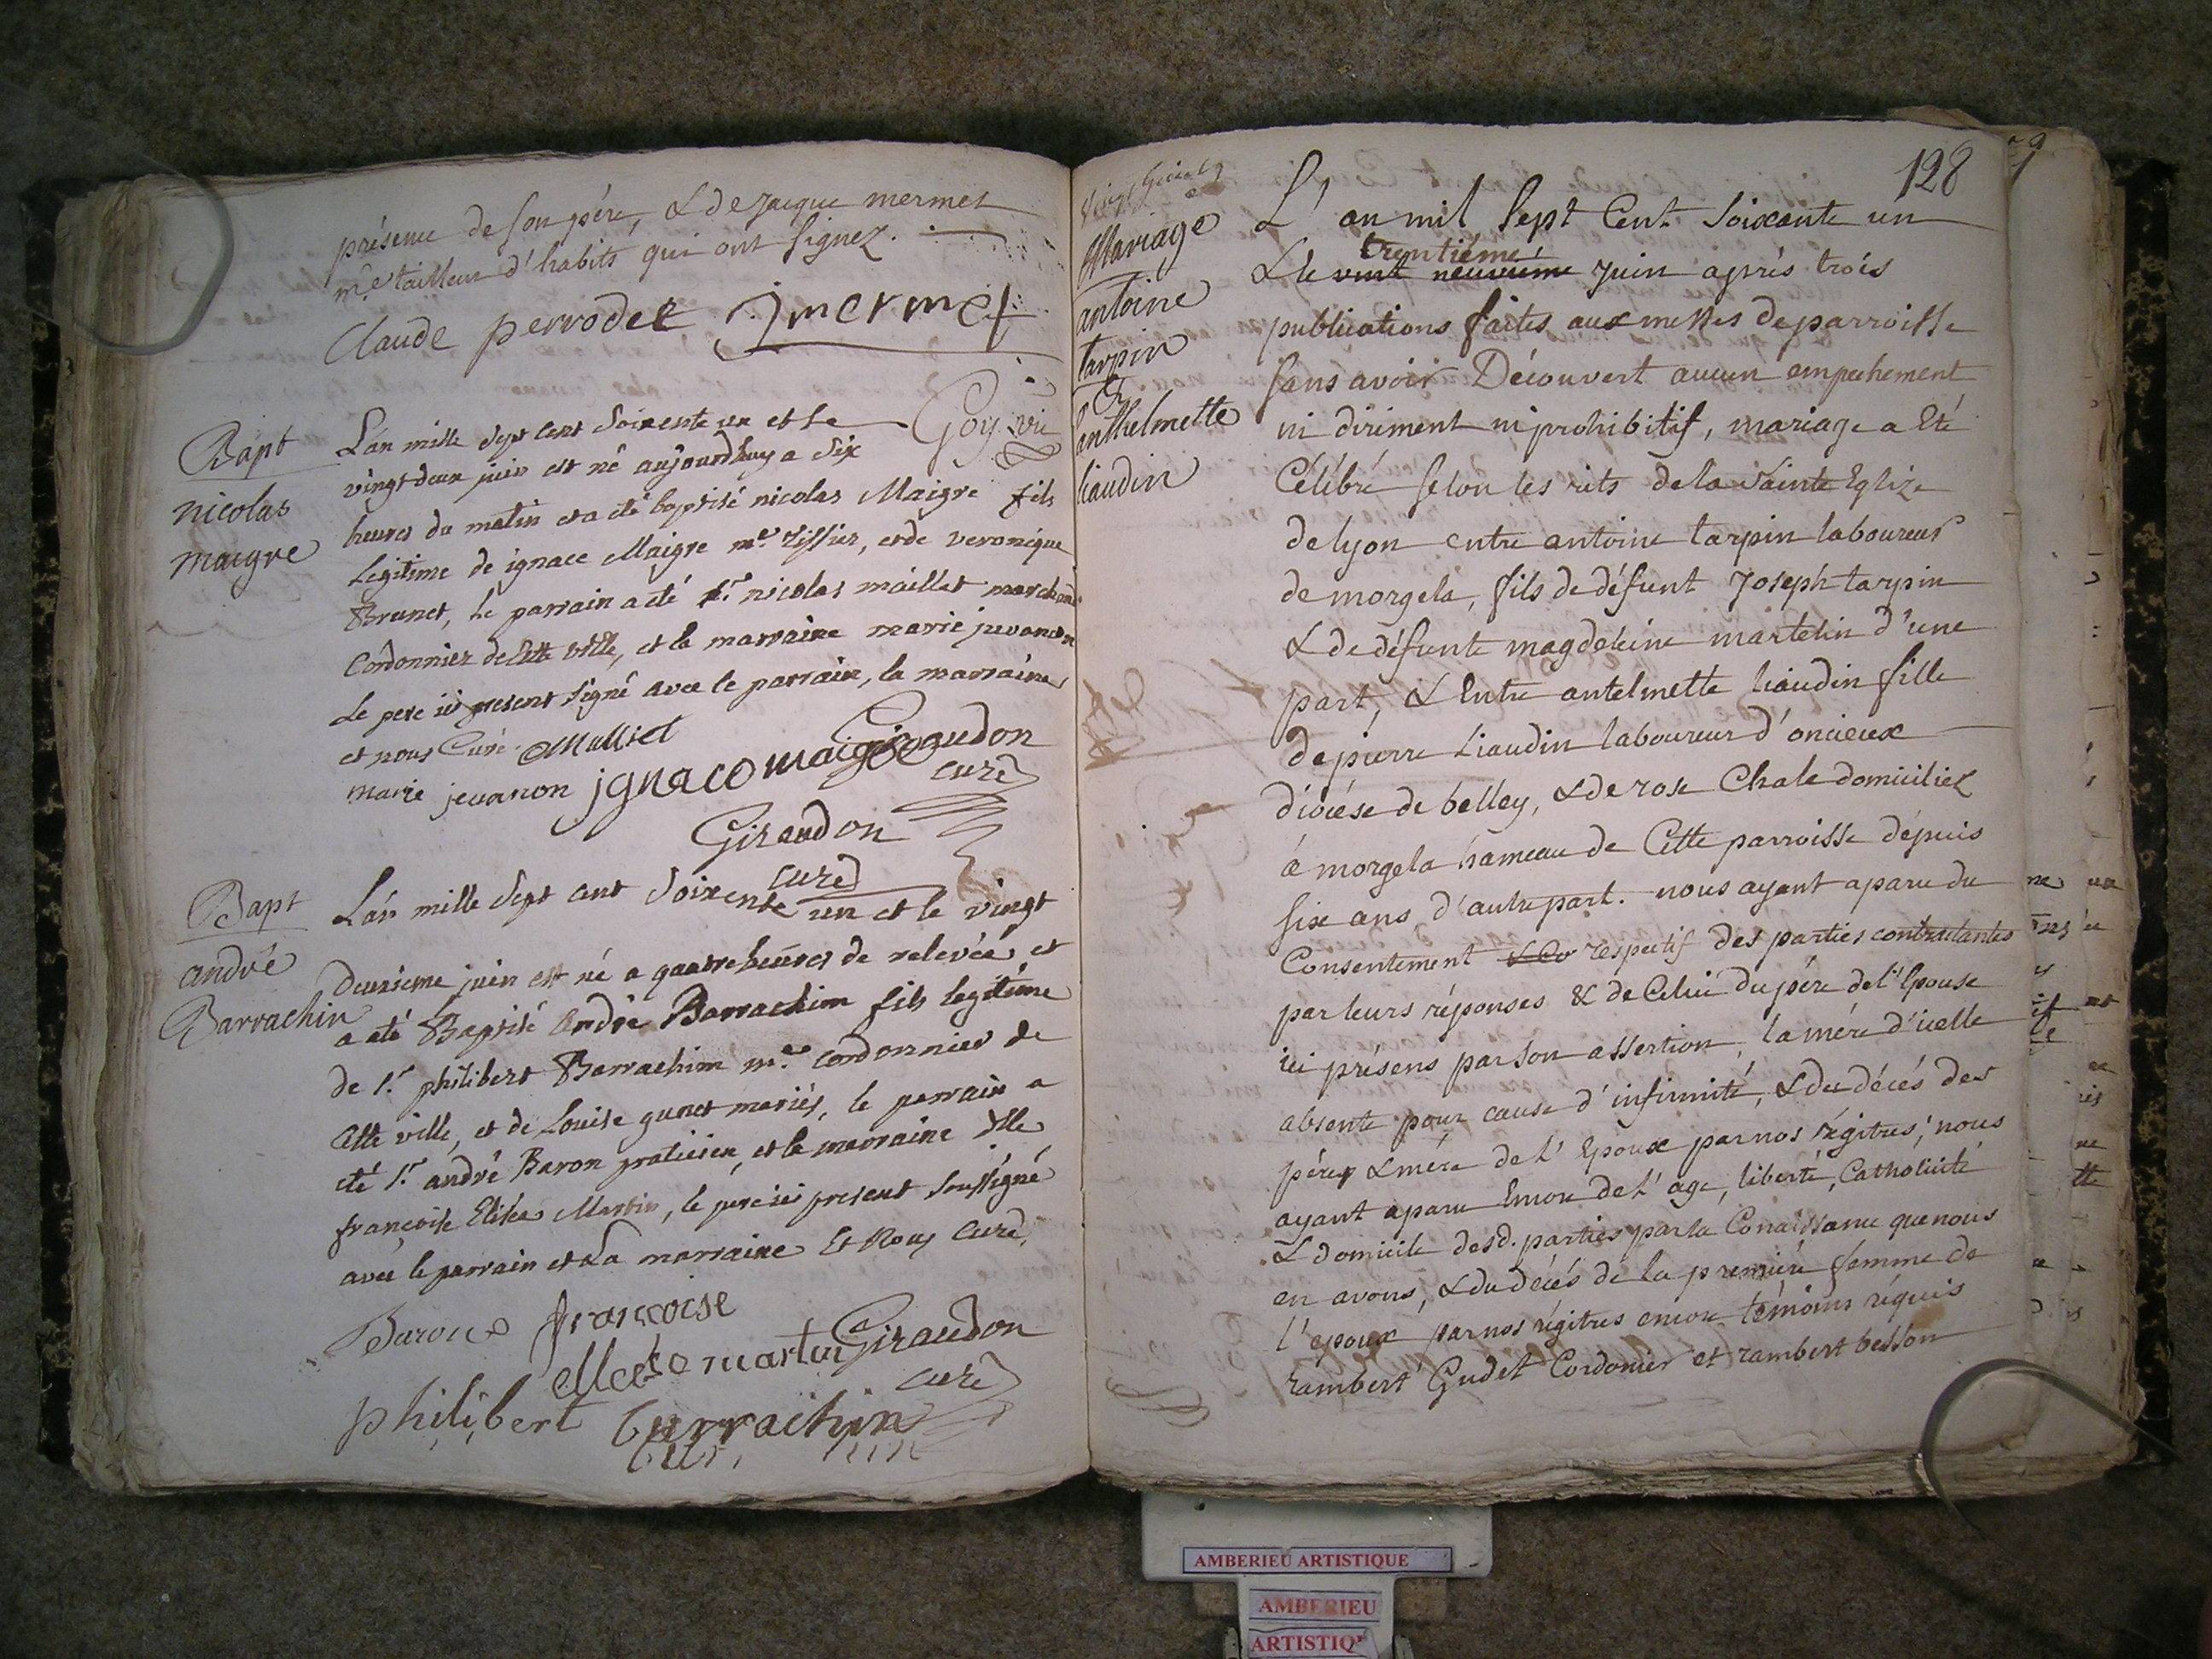 présence de son père, & de jacque mermet
me tailleur d'habits qui ont signez.
Claude perrodet Jmermet
Goy vic
Bapt
nicolas
maigre
L'an mille Sept Cent Soixente un et le
vingt deux juin est né aujourdhuy a Six
heures du matin et a été baptisé nicolas Maigre fils
Legitime de ignace Maigre me. Tissier, et de veronique
Brunet, le parrain a été sr. nicolas maillet marchand
Cordonnier de Cette ville, et la marraine marie juvanon
Le pere ici present signé avec le parrain, la marraine
et nous Curé Malliet
marie jeuanon jgnace maigre Giraudon
curé
Giraudon
curé
Bapt
andré
Barrachin
L'an mille Sept cent Soixente un et le vingt
deuxieme juin est né a quatre heures de relevée et
a eté Baptisé André Barrachim fils legitime
de sr. philibert Barrachim me. Cordonnier de
Cette ville, et de Louise gunet mariés, le parrain a
eté sr. andré Baron praticien, et la marraine dlle
françoise Martin, le pere ici present soussigné
avec le parrain et La marraine Et Nous Curé.
Baron françoise
martin Giraudon
curé
philibert barrachin
128
Mariage
antoine
tarpin
&
anthelmette
liaudin
L'an mil Sept Cent Soixante un
trentiéme
& le vint neuviéme Juin aprés trois
publications faites aux messes de parroisse
sans avoir Découvert aucun empechement
ni diriment ni prohibitif, mariage a Eté
Célébré selon les rits de la Sainte Eglize
de lyon entre antoine tarpin laboureur
de morgela, fils de défunt Joseph tarpin
& de défunte magdeleine martelin d'une
part, & Entre antelmette liaudin fille
de pierre Liaudin laboureur d'oncieux
diocése de belley, & de rose Chale domiciliez
à morgela hameau de Cette parroisse dépuis
six ans d'autre part. nous ayant aparu du
Consentement & Co respectif des parties contractantes
par leurs réponses & de Celui du pére de l'Epouse
ici présens par son assertion, la mére d'icelle
absente pour cause d'infirmité, & du décés des
pére & mére de l'Epoux par nos régitres; nous
ayant aparu Encore de l'age, liberté, Catholicité
& domicile desd. parties par la Conaissance que nous
en avons, & du décés de la premiére femme de
l'epoux par nos régitres encore témoins réquis
rambert Gudet Cordonier et rambert besson
AMBERIEU ARTISTIQUE
AMBERIEU
ARTISTIQ